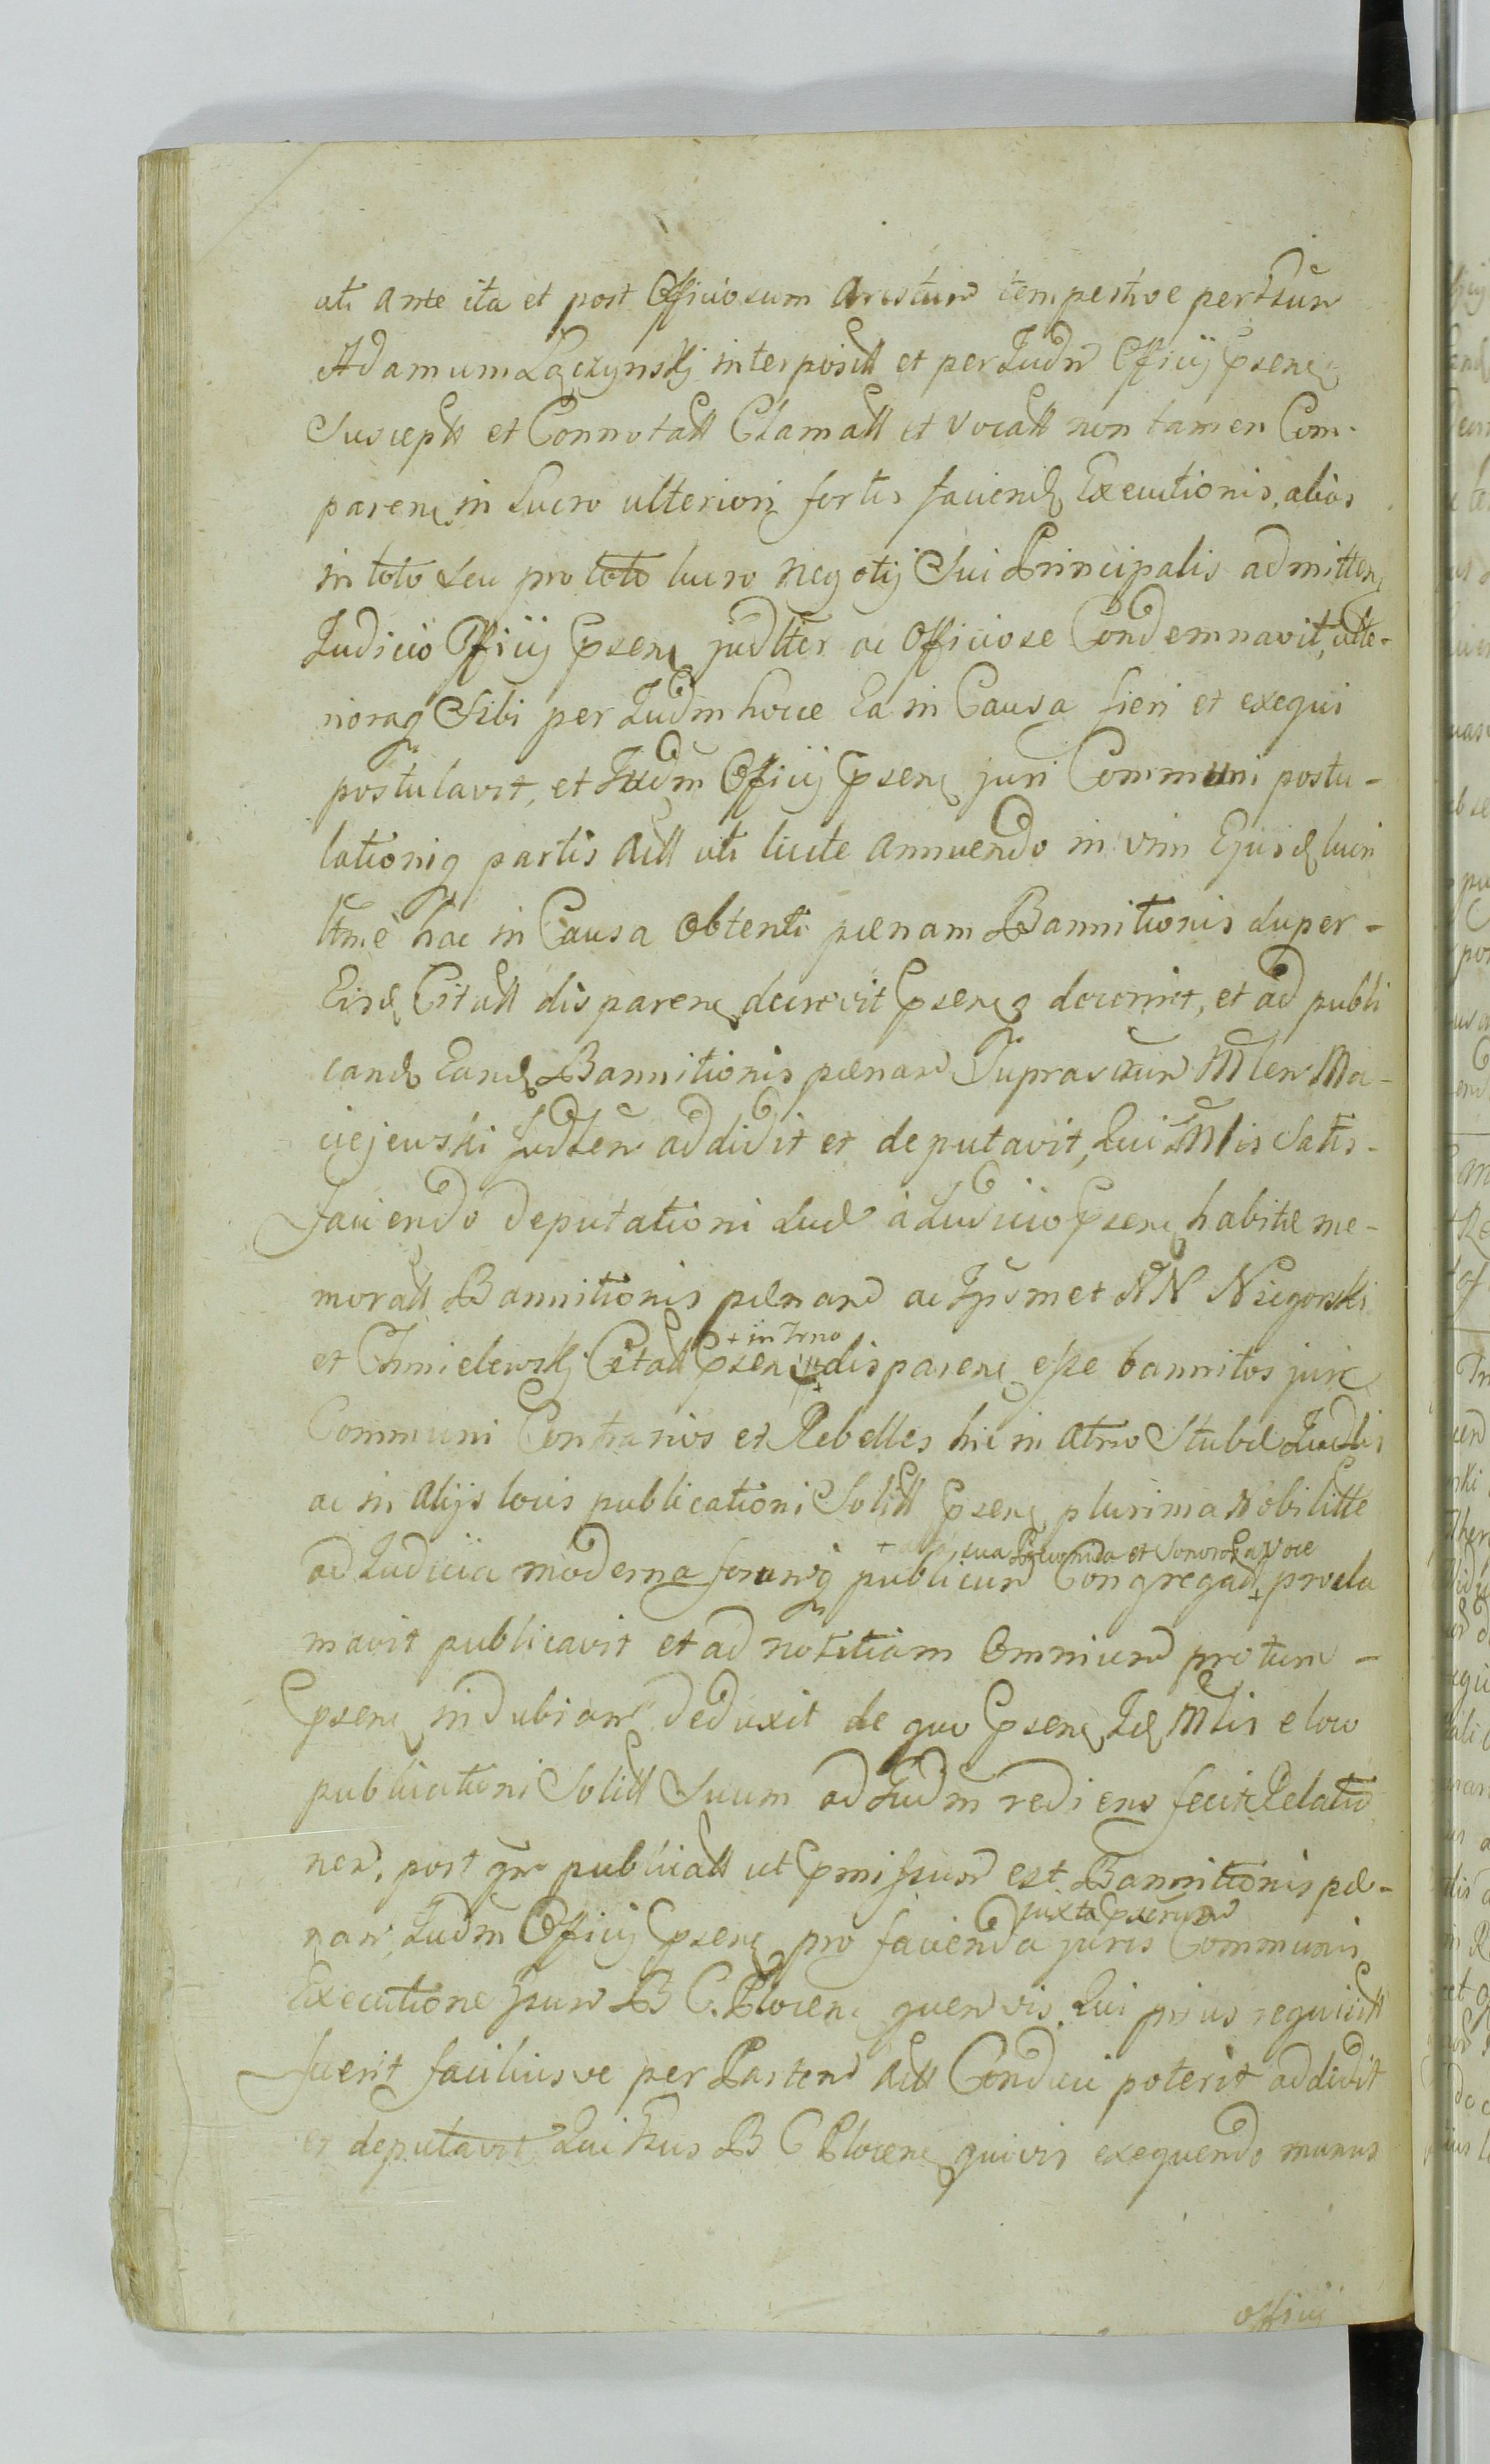 uti ante ita et post Officiosum Arestum tempestive per Dnum
Adamum Łączynskj interposit et per Judm Officij psens
Suscept et Connotatt Clamatt et vocatt non tamen Com-
paren in Lucro ulterioris fortis faciend Executionis, alias
in toto seu pro toto lucro negotij Sui Principalis admitten
Judicio Officij psens judlter ac Officiose Condemnavit, ulte-
rioraq Sibi per Judm hocce Ea in Causa fieri et exequi
postulavit, et Judm Officij psens juri Communi postu-
lationiq partis Actt uti licite annuendo in vim Ejusd lucri
ltme hac in Causa obtenti pænam Bannitionis super
Eisd Citatt disparen decrevit psensq decernit, et ad publi
cand Eand Bannitionis pænam Suprascrum Mlem Ma-
ciejewski Judlem addidit et deputavit, Qui Mlis Satis-
faciendo deputationi Suæ à Judicio psens habitæ me-
moratt Bannitionis pænam ac Ipsmet NN Niegorski
+ in Trno
et Chmielewskj Citatt psen disparen esse bannitos juri
Communi Contrarios et Rebelles hic in atrio Stubæ Judlis
ac in Alijs locis publicationi Solitt psens plurima Nobilitte
+ sua et Sonorosa Voce
ad Judicia moderna forumq publicum Congregatt + procla
mavit publicavit et ad notitiam Omnium pro tunc
psens indubiam deduxit de quo psens Id Mlis e loco
publicationi Solitt Suum ad Judm rediens fecit Relatio
nem, post qm publicatt ut pmissum est Bannitionis pæ-
juxta pscriptum
nam, Judm Officij psens pro facienda juris Communis
Executione Jsum B C. Plocen quemvis, Qui prius requisitt
fuerit faciliusve per Partem Actt Conduci poterit addidit
et deputavit Qui Jsus B C Plocen quivis exequendo munus
officij